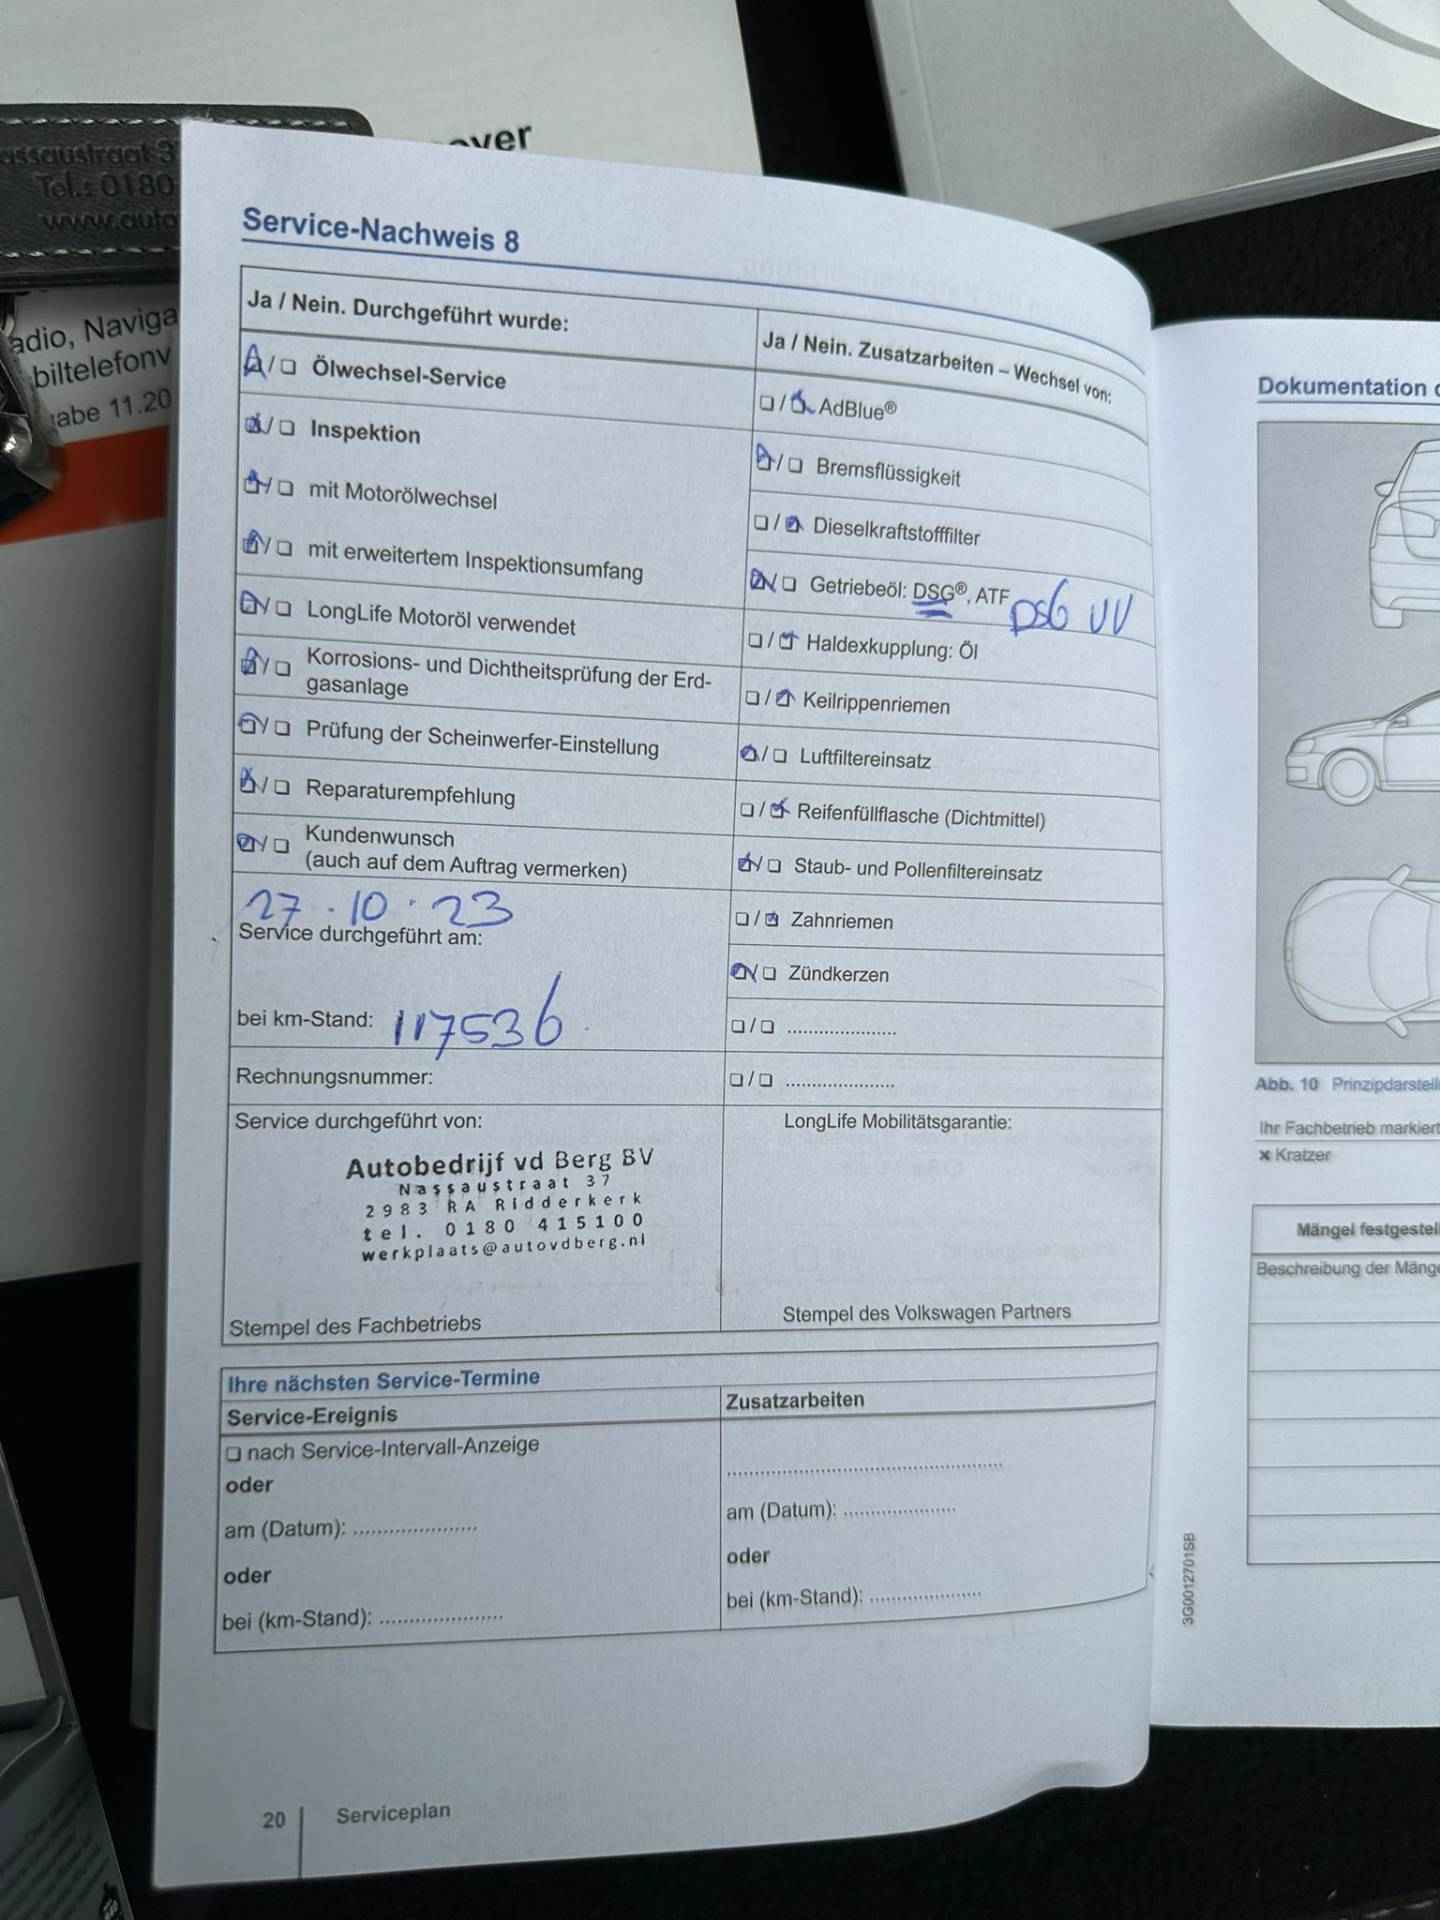 over
assaustraat 3
Tel.: 0180
www.auto
adio, Naviga
biltelefonv
gabe 11.20
Service-Nachweis 8
Ja / Nein. Durchgeführt wurde:
❏ / ❏ Ölwechsel-Service
❏ / ❏ Inspektion
❏ / ❏ mit Motorölwechsel
❏ / ❏ mit erweitertem Inspektionsumfang
❏ / ❏ LongLife Motoröl verwendet
❏ / ❏ Korrosions- und Dichtheitsprüfung der Erd-
gasanlage
❏ / ❏ Prüfung der Scheinwerfer-Einstellung
❏ / ❏ Reparaturempfehlung
❏ / ❏ Kundenwunsch
(auch auf dem Auftrag vermerken)
27 . 10 . 23
Service durchgeführt am:
bei km-Stand: 117536
Rechnungsnummer:
Service durchgeführt von:
Autobedrijf vd Berg BV
Nassaustraat 37
2983 RA Ridderkerk
tel. 0180 415100
werkplaats@autovdberg.nl
Stempel des Fachbetriebs
Ja / Nein. Zusatzarbeiten – Wechsel von:
❏ / ❏ AdBlue®
❏ / ❏ Bremsflüssigkeit
❏ / ❏ Dieselkraftstofffilter
❏ / ❏ Getriebeöl: DSG®, ATF DSG VV
❏ / ❏ Haldexkupplung: Öl
❏ / ❏ Keilrippenriemen
❏ / ❏ Luftfiltereinsatz
❏ / ❏ Reifenfüllflasche (Dichtmittel)
❏ / ❏ Staub- und Pollenfiltereinsatz
❏ / ❏ Zahnriemen
❏ / ❏ Zündkerzen
❏ / ❏ .....................
❏ / ❏ .....................
LongLife Mobilitätsgarantie:
Stempel des Volkswagen Partners
Ihre nächsten Service-Termine
Service-Ereignis
❏ nach Service-Intervall-Anzeige
oder
am (Datum): .....................
oder
bei (km-Stand): .....................
Zusatzarbeiten
..................................................
am (Datum): .....................
oder
bei (km-Stand): .....................
20 Serviceplan
3G0012701SB
Dokumentation
Abb. 10 Prinzipdarstell
Ihr Fachbetrieb markiert
× Kratzer
Mängel festgestell
Beschreibung der Mänge